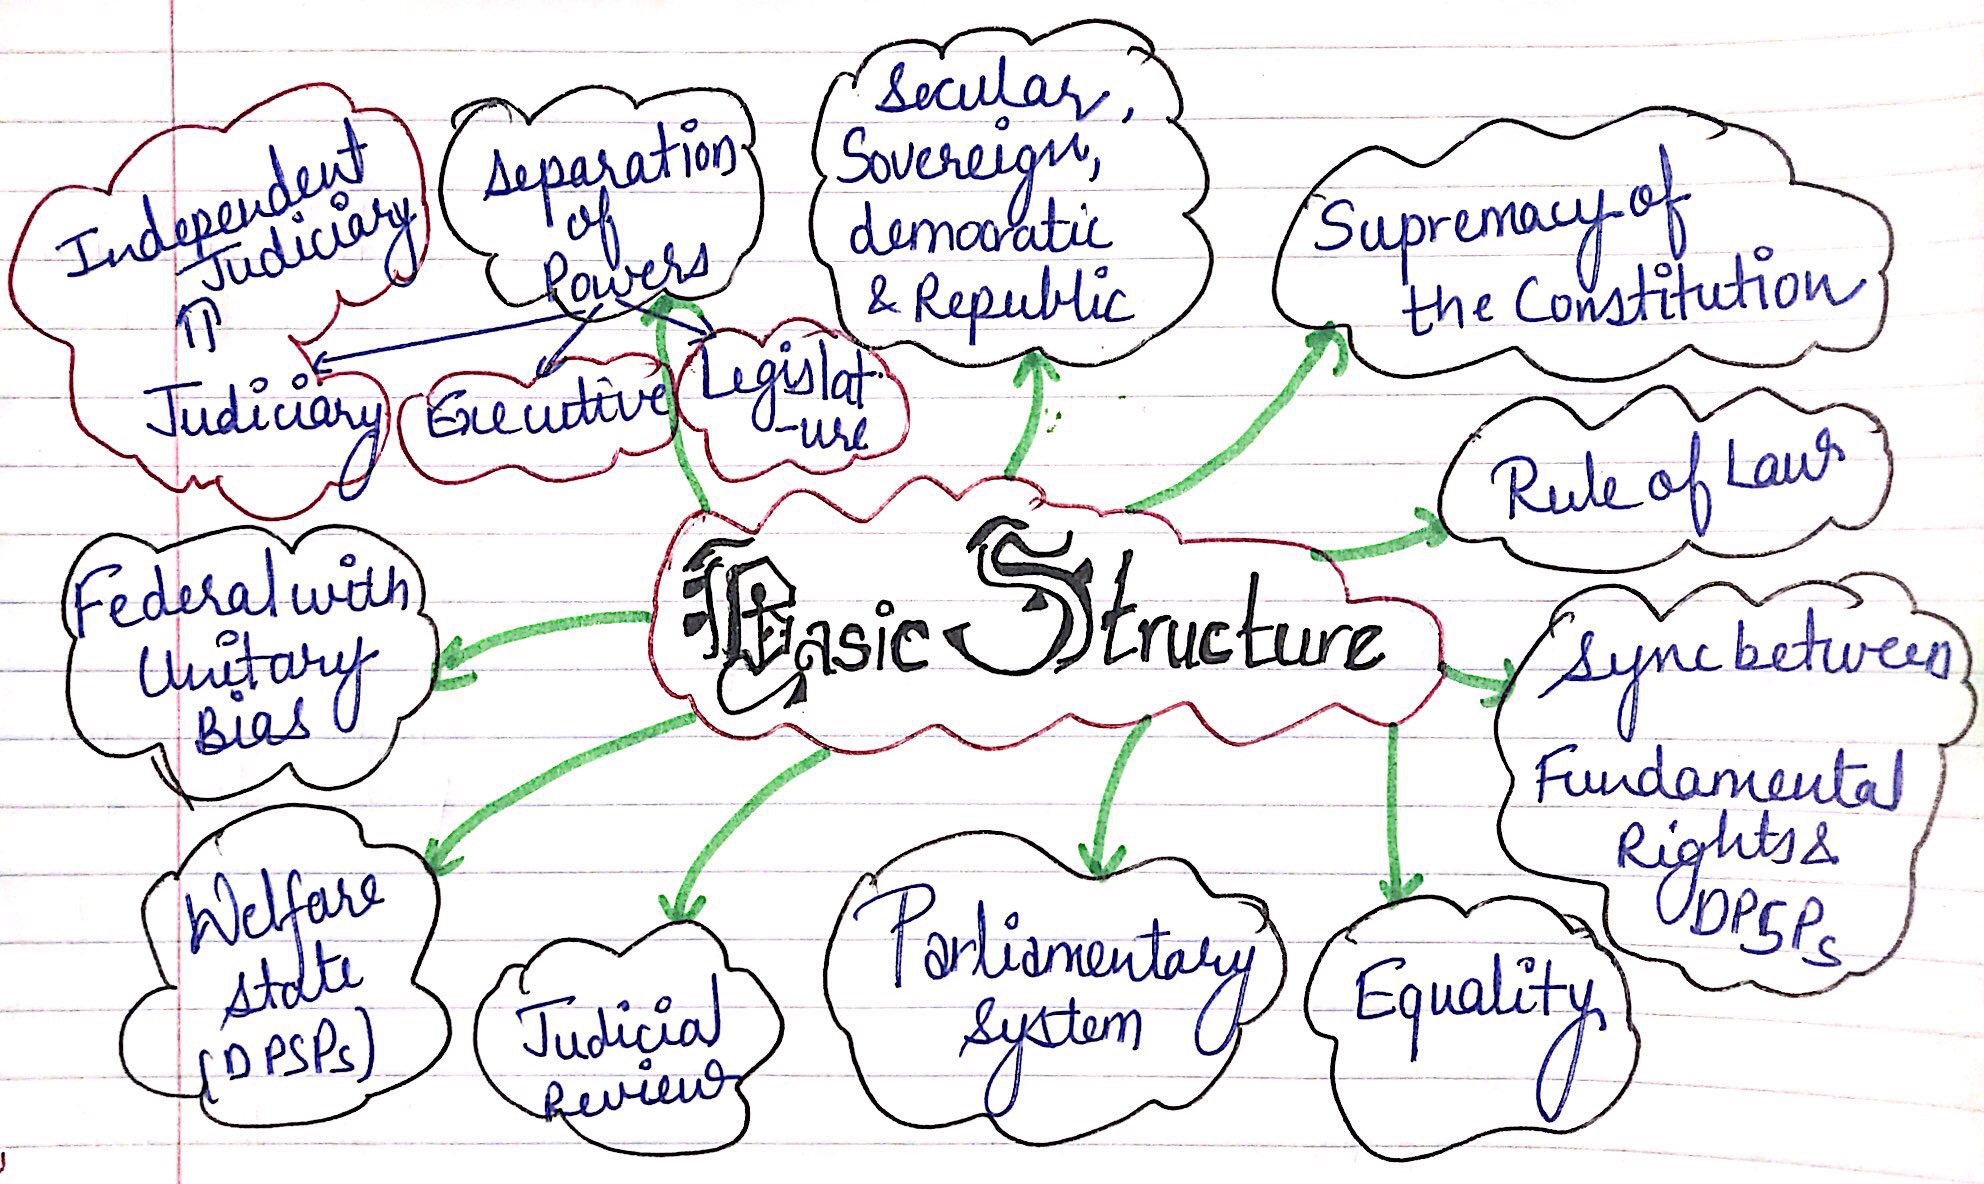 Independent
Judiciary
⇑
Judiciary
Separation
of
Powers
Executive
Legislat-
-ure
Secular,
Sovereign,
democratic
& Republic
Supremacy of
the Constitution
Rule of Law
Basic Structure
Sync between
Fundamental
Rights &
DPSPs
Federal with
Unitary
Bias
Welfare
state
(DPSPs)
Judicial
Review
Parliamentary
System
Equality